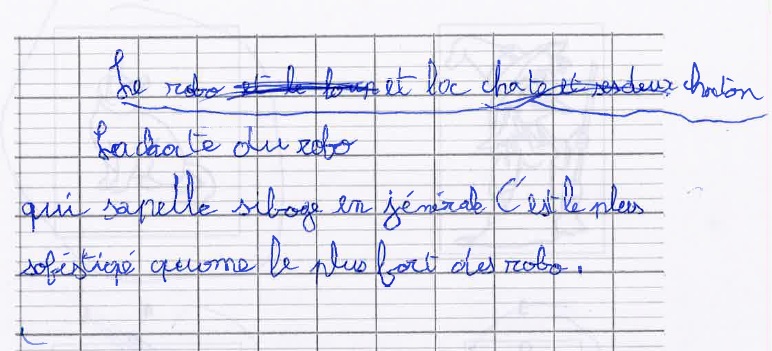 Le robo et loc chate et ses deux chaton
La chate du robo
qui sapelle siboge en jénérale C'est le plus
sofistiqé quome le plus fort des robo.